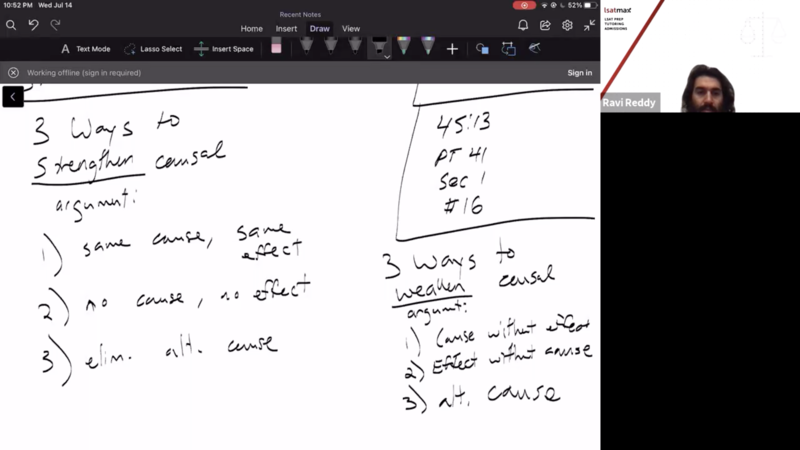 10:52 PM Wed Jul 14
52%
Recent Notes
Home Insert Draw View
Text Mode
Lasso Select
Insert Space
Working offline (sign in required)
Sign in
3 Ways to
Strengthen causal
argument:
1) same cause, same
effect
2) no cause, no effect
3) elim. alt. cause
45:13
PT 41
Sec 1
#16
3 Ways to
weaken causal
argument:
1) Cause without effect
2) Effect without cause
3) alt. cause
lsatmax
LSAT PREP
TUTORING
ADMISSIONS
Ravi Reddy